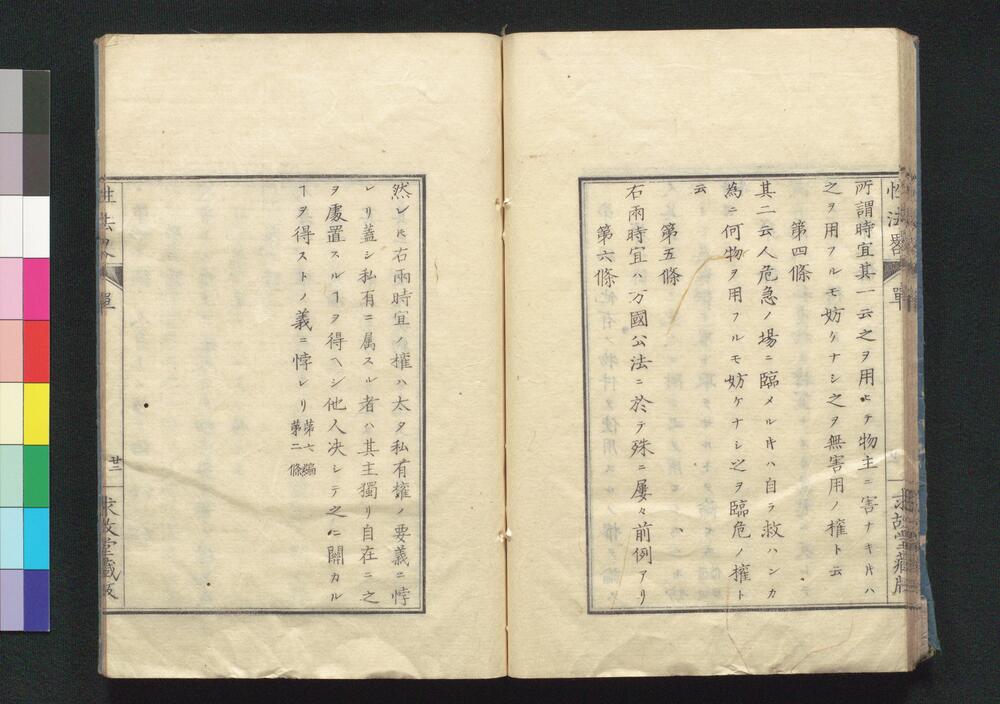 性法畧 單
所謂時宜其一云之ヲ用ヒテ物主ニ害ナキ𪜈ハ
之ヲ用フルモ妨ケナシ之ヲ無害用ノ權ト云
第四條
其二云人危急ノ場ニ臨メル𪜈ハ自ラ救ハンカ
為ニ何物ヲ用フルモ妨ケナシ之ヲ臨危ノ權ト
云
第五條
右兩時宜ハ万國公法ニ於テ殊ニ屢々前例アリ
第六條
然レ𪜈右兩時宜ノ權ハ太タ私有權ノ要義ニ悖
レリ蓋シ私有ニ属スル者ハ其主獨リ自在ニ之
ヲ處置スルヿヲ得ヘシ他人决シテ之ニ關カル
ヿヲ得ストノ義ニ悖レリ 第七編
第二條
單
廿二
求故堂藏版